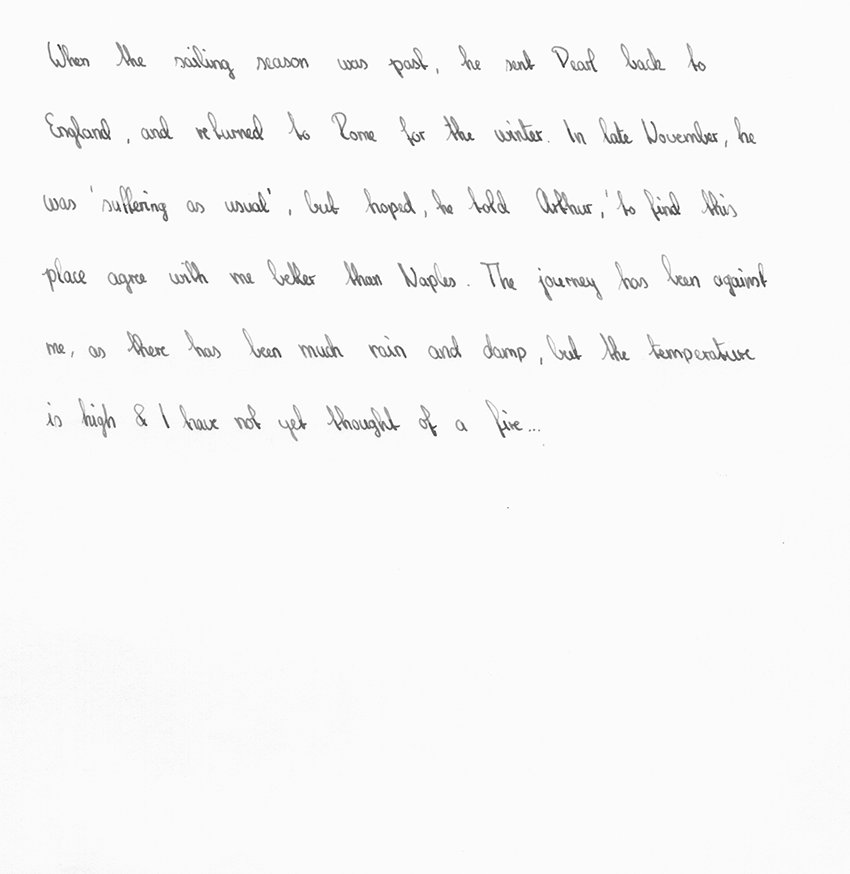 When the sailing season was past, he sent Pearl back to
England, and returned to Rome for the winter. In late November, he
was 'suffering as usual', but hoped, he told Arthur, 'to find this
place agree with me better than Naples. The journey has been against
me, as there has been much rain and damp, but the temperature
is high & I have not yet thought of a fire...